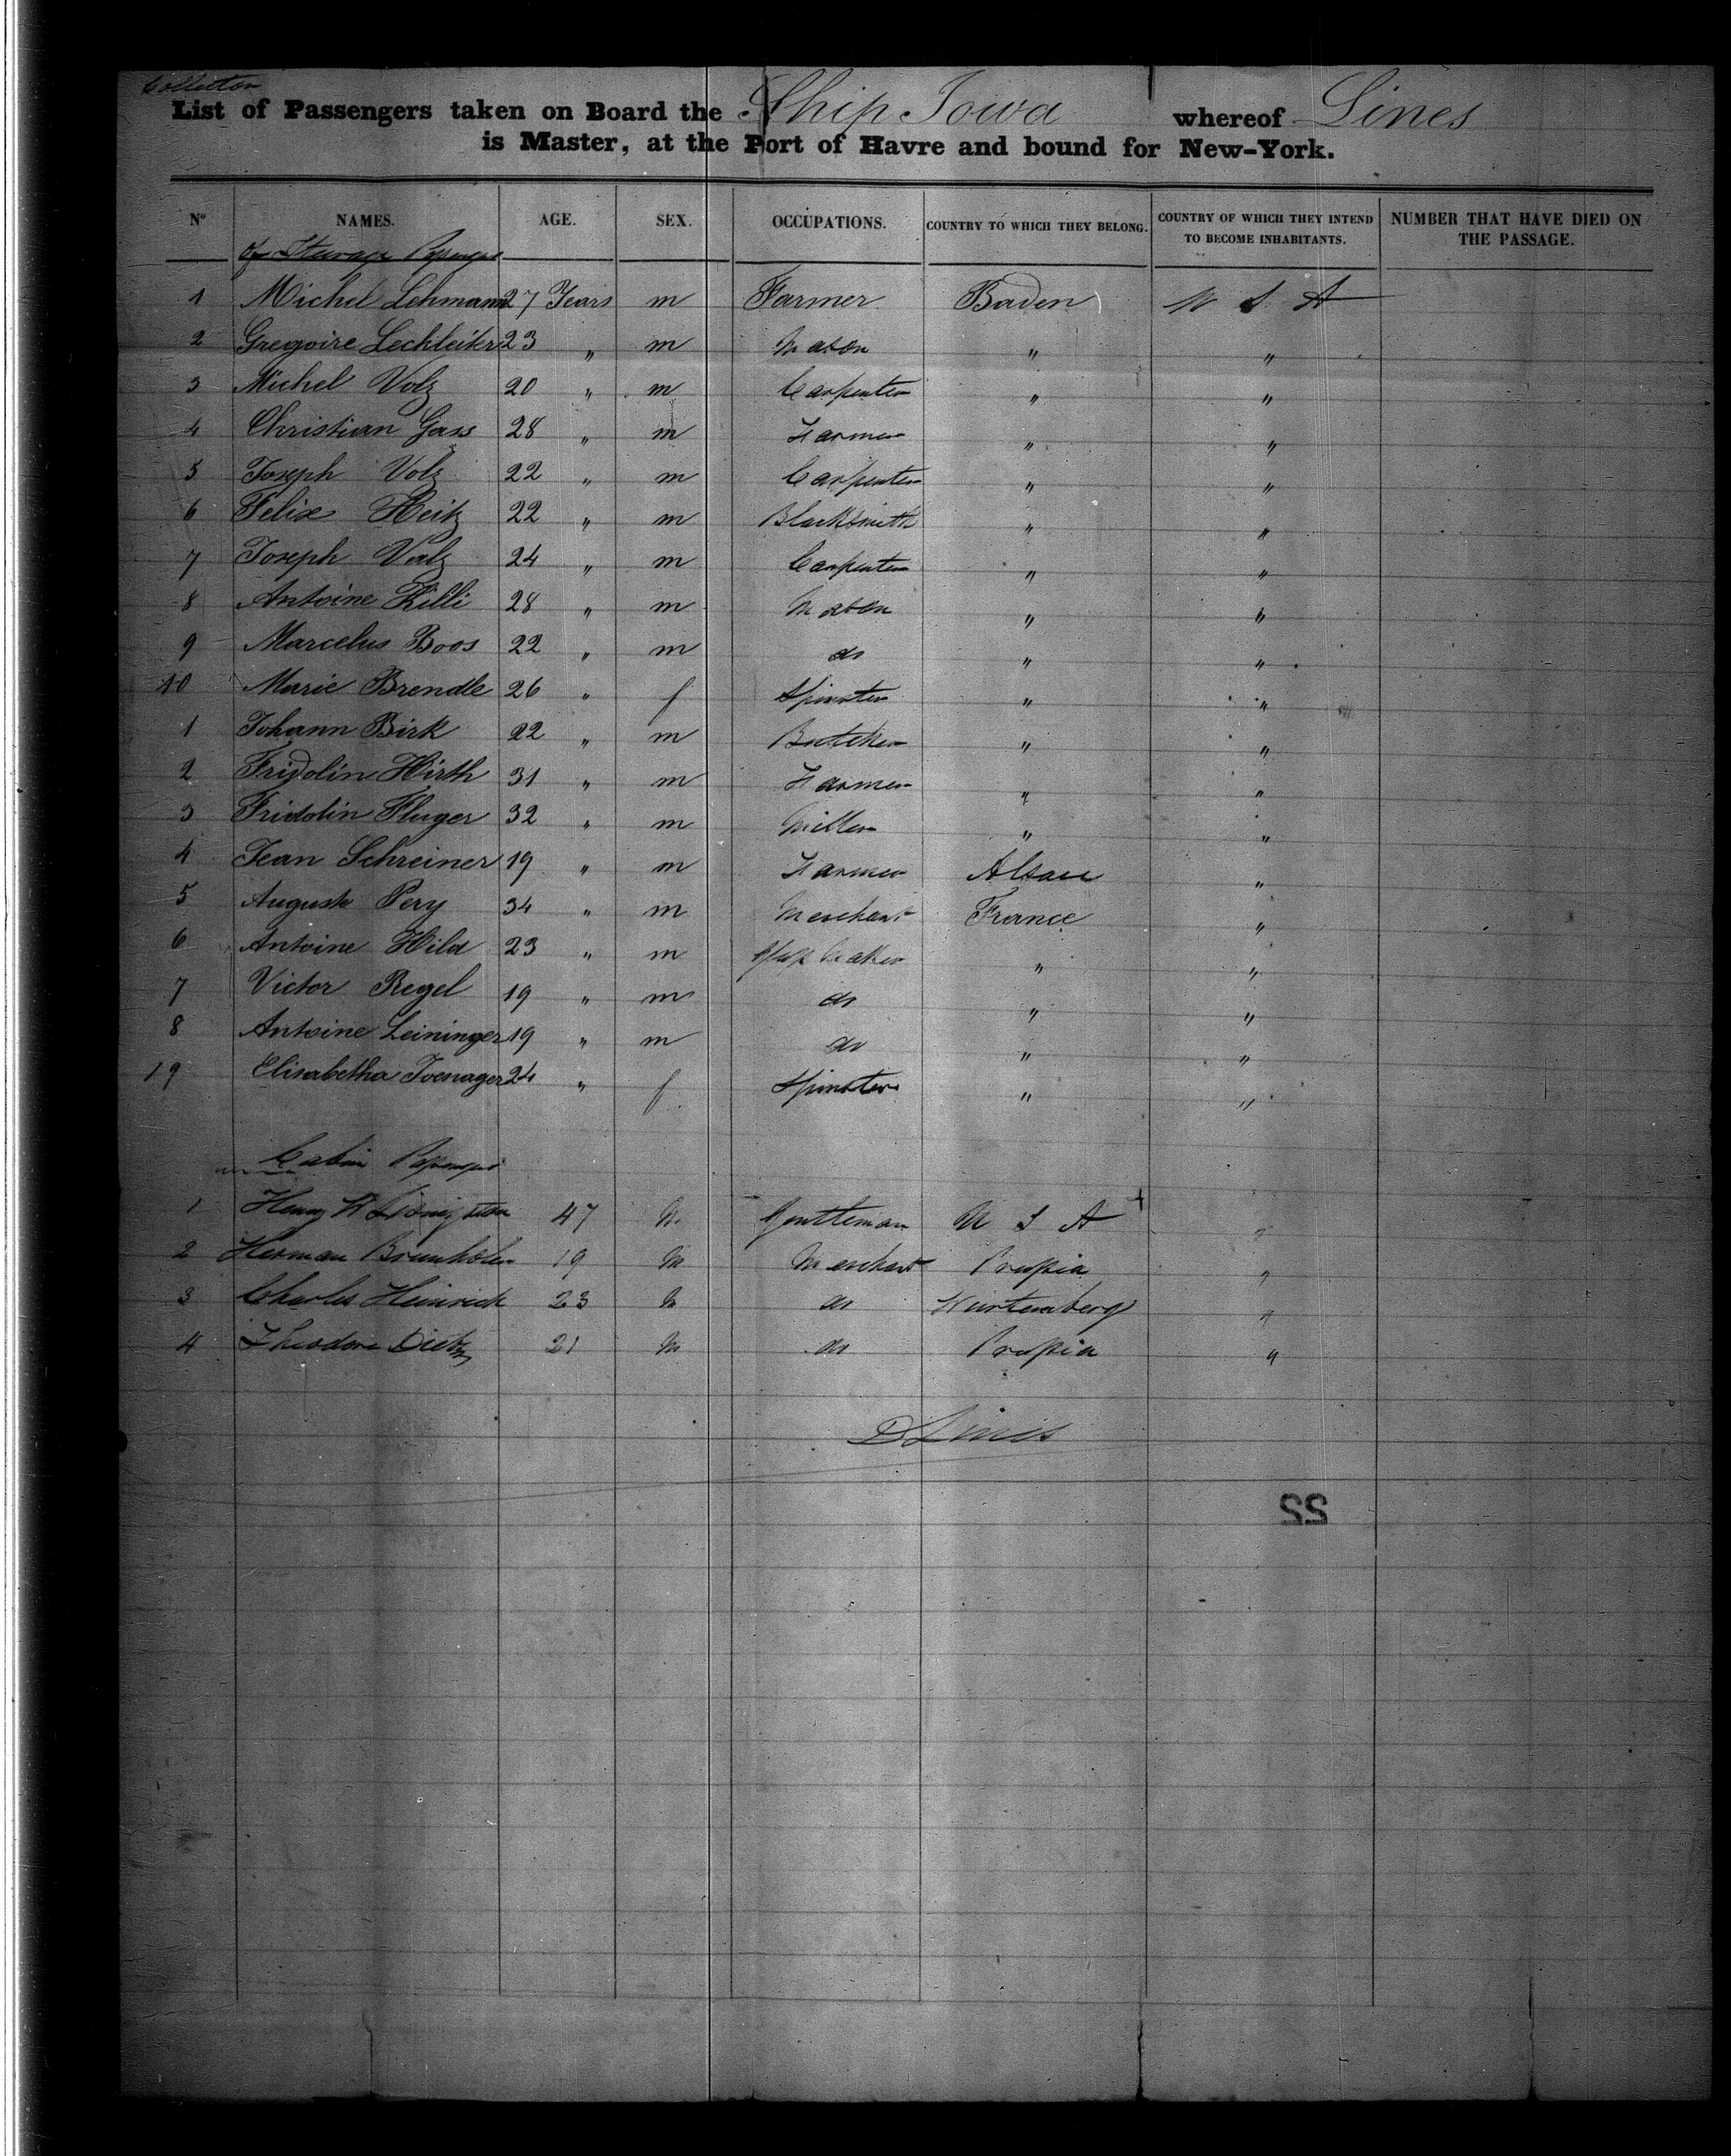 Collector
List of Passengers taken on Board the Ship Iowa whereof Lines
is Master, at the Port of Havre and bound for New-York.
Nº NAMES. AGE. SEX. OCCUPATIONS. COUNTRY TO WHICH THEY BELONG. COUNTRY OF WHICH THEY INTEND TO BECOME INHABITANTS. NUMBER THAT HAVE DIED ON THE PASSAGE.
of Steerage Passengers
1 Michel Lehmann 27 Years m Farmer Baden U S A
2 Gregoire Lechleiter 23 " m Mason " "
3 Michel Volz 20 " m Carpenter " "
4 Christian Gass 28 " m Farmer " "
5 Joseph Volz 22 " m Carpenter " "
6 Felix Heitz 22 " m Blacksmith " "
7 Joseph Valz 24 " m Carpenter " "
8 Antoine Killi 28 " m Mason " "
9 Marcelus Boos 22 " m do " "
10 Marie Brendle 26 " f Spinster " "
1 Johann Birk 22 " m Butcher " "
2 Fridolin Hirth 31 " m Farmer " "
3 Fridolin Fluger 32 " m Miller " "
4 Jean Schreiner 19 " m Farmer Alsace "
5 Auguste Pery 34 " m Merchant France "
6 Antoine Hild 23 " m maker " "
7 Victor Regel 19 " m do " "
8 Antoine Leininger 19 " m do " "
19 Elisabetha 24 " f Spinster " "
Cabin Passengers
1 Henry W 47 M Gentleman U S A "
2 Herman 19 M Merchant Prussia "
3 Charles Heinrich 23 M do Wurtemberg "
4 Theodore Dietz 21 M do Prussia "
D Lines
22